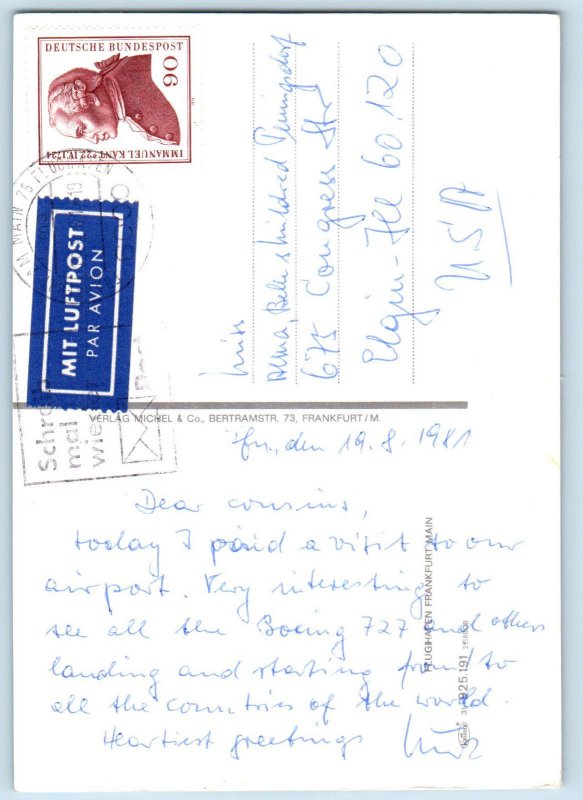 DEUTSCHE BUNDESPOST
90
IMMANUEL KANT 22.IV.1724
AM MAIN 75 FLUGHAFEN
MIT LUFTPOST
PAR AVION
Schreib
mal
wieder
Post
Miss
Alma, Belle & Mildred
675 Congress Str
Elgin - Ill 60.120
USA
VERLAG MICHEL & Co., BERTRAMSTR. 73, FRANKFURT/M.
FLUGHAFEN FRANKFURT MAIN
925.191
Ffm, den 19.8.1981
Dear cousins,
today I paid a visit to our
airport. Very interesting to
see all the Boeing 727 and others
landing and starting from/to
all the countries of the world.
Heartiest greetings